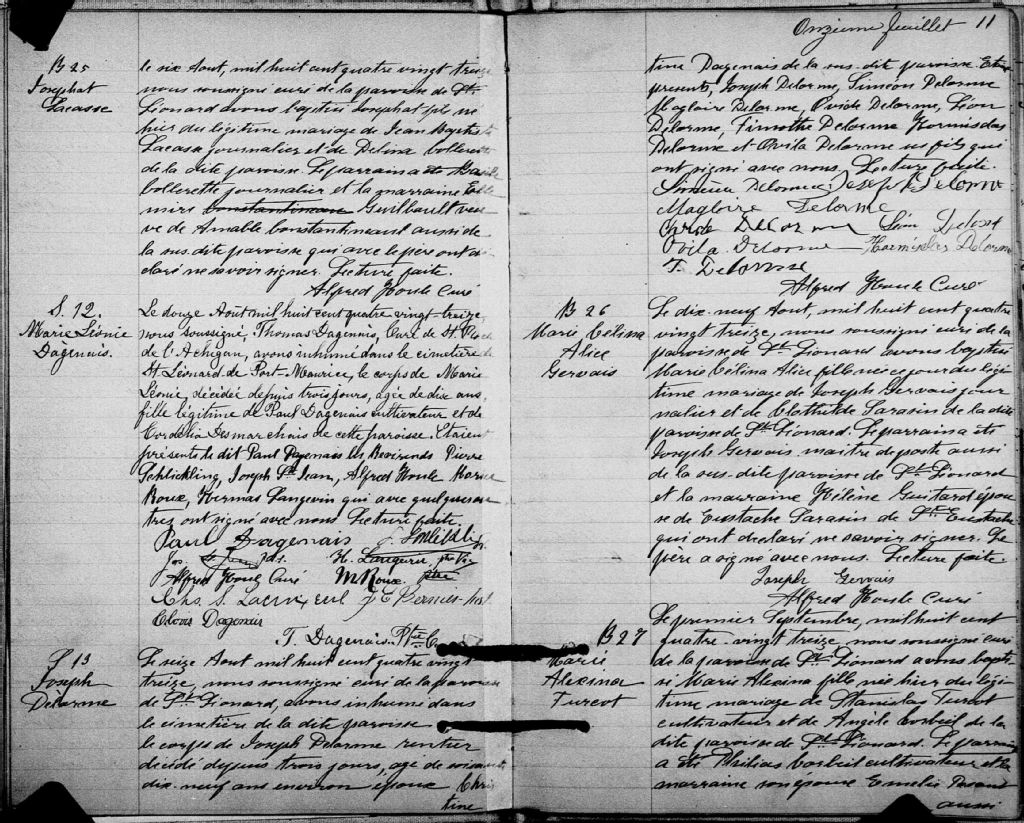 B 25
Josephat
Lacasse
le six Aout, mil huit cent quatre vingt treize
nous soussigné curé de la paroisse de St
Léonard avons baptisé Josephat fils né
hier du légitime mariage de Jean Baptiste
Lacasse journalier et de Delina Collerette
de la dite paroisse. Le parrain a été
Collerette journalier et la marraine
Guilbault veu
ve de Amable Constantineau aussi de
la sus dite paroisse qui avec le père ont dé
claré ne savoir signer. Lecture faite.
Alfred Houle Curé
S. 12.
Marie Léonie
Dagenais.
Le douze Aout mil huit cent quatre vingt treize,
nous soussigné, Thomas Dagenais, Curé de St Roch
de l'Achigan, avons inhumé dans le cimetière de
St Léonard de Port-Maurice, le corps de Marie
Léonie, décédée depuis trois jours, agée de dix ans,
fille légitime de Paul Dagenais cultivateur et de
Cordélia Desmarchais de cette paroisse. Etaient
présents le dit Paul Dagenais les Révérends Pierre
Schlickling, Joseph St Jean, Alfred Houle
Roux, Hermas Langevin qui avec quelques au
tres ont signé avec nous Lecture faite.
Paul Dagenais
Jos. H. Langevin ptre
Alfred Houle Curé M Roux ptre
Chs. S. Lacroix J E Bernier
Clovis Dagenais
T. Dagenais Ptre C
S 13
Joseph
Delorme
Le seize Aout mil huit cent quatre vingt
treize, nous soussigné curé de la paroisse
de St Léonard, avons inhumé dans
le cimetière de la dite paroisse
le corps de Joseph Delorme rentier
décédé depuis trois jours, agé de soixante
dix-neuf ans environ époux Chris
tine
Onzième feuillet 11
tine Dagenais de la sus-dite paroisse. Etaient
présents, Joseph Delorme, Siméon Delorme
Magloire Delorme, Ovide Delorme, Léon
Delorme, Timothé Delorme Hormisdas
Delorme et Ovila Delorme ses fils qui
ont signé avec nous. Lecture faite.
Simeon Delorme Joseph Delorme
Magloire Delorme
Ovide Delorme Léon Delorme
Ovila Delorme Hormisdas Delorme
T. Delorme
Alfred Houle Curé
B 26
Marie Célina
Alice
Gervais
Le dix-neuf Aout, mil huit cent quatre
vingt treize, nous soussigné curé de la
paroisse de St Léonard avons baptisé
Marie Célina Alice fille née ce jour du légi
time mariage de Joseph Gervais jour
nalier et de Clothilde Sarasin de la dite
paroisse de St Léonard. Le parrain a été
Joseph Gervais maitre de poste aussi
de la sus-dite paroisse de St Léonard
et la marraine Hélène Guitard épou
se de Eustache Sarasin de St Eustache
qui ont déclaré ne savoir signer. Le
père a signé avec nous. Lecture faite.
Joseph Gervais
Alfred Houle Curé
B 27
Marie
Alexina
Turcot
Le premier Septembre, mil huit cent
quatre-vingt treize, nous soussigné curé
de la paroisse de St Léonard avons bapti
sé Marie Alexina fille née hier du légi
time mariage de Stanislas Turcot
cultivateur et de Angèle Corbeil de la
dite paroisse de St Léonard. Le parrain
a été Philias Corbeil cultivateur et la
marraine son épouse Emelie
aussi